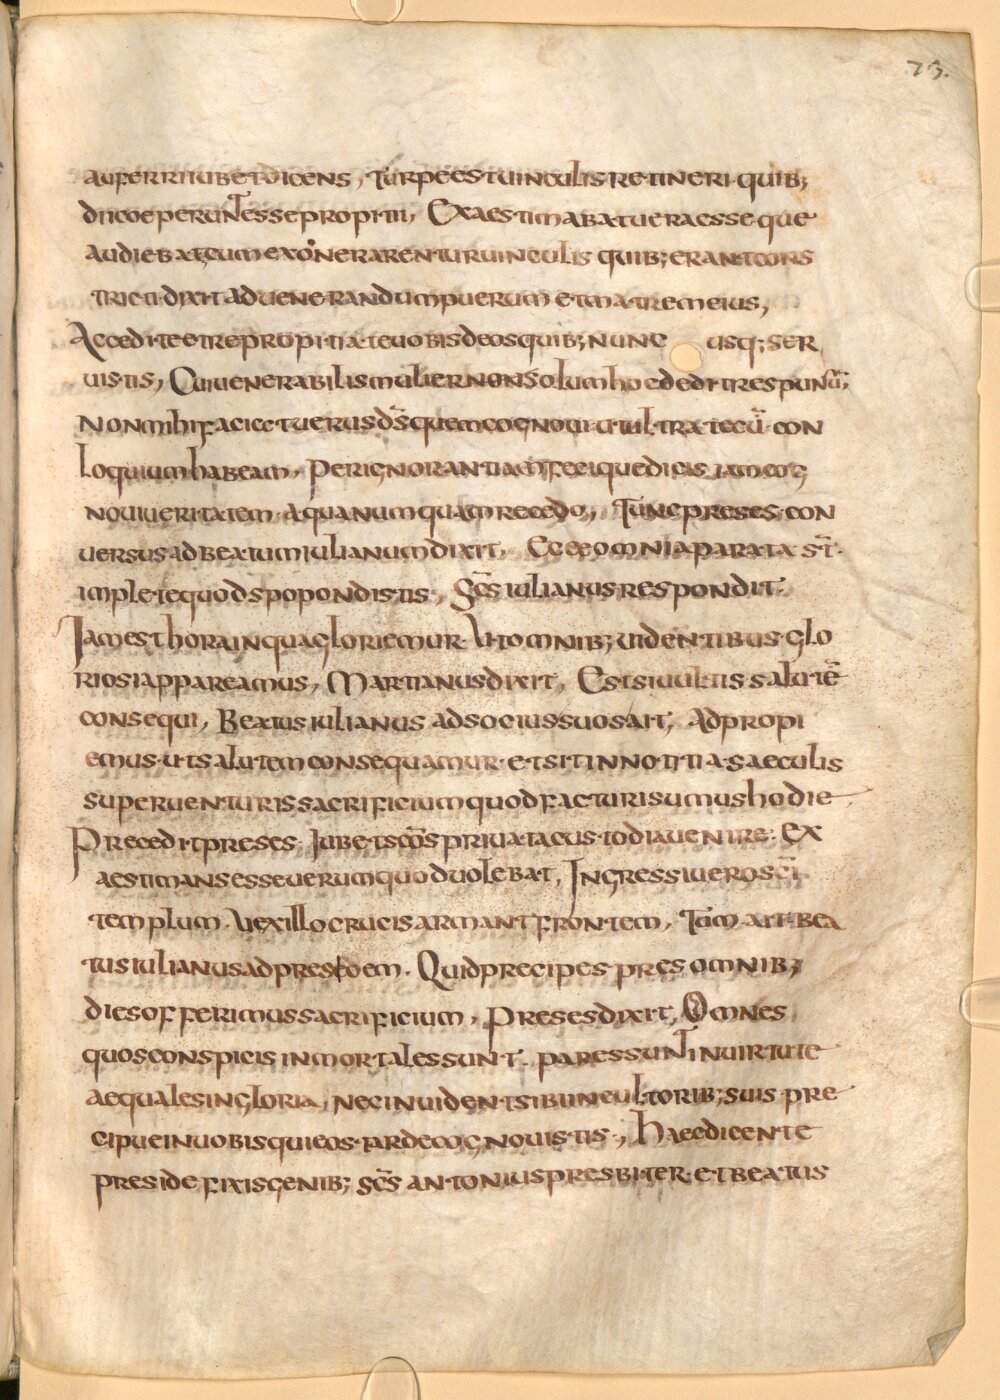 73.
auferri iubet dicens, Turpe est uinculis retineri quib;
dii coeperunt esse propitii, Exaestimabat uera esse que
audiebat cum exonerarentur uinculis quib; erant cons
tricti dixit ad uenerandum puerum et matrem eius,
Accedite et repropitiate uobis deos quib; nunc usq; ser
uistis, Cui uenerabilis mulier non solum hoc dedit respunsū;
Non mihi faciet uerus ds̄ quem cognoui ut ultra tecū con
loquium habeam, per ignorantiam feci que dicis iam cog
noui ueritatem a qua numquam recedo, Tunc preses con
uersus ad beatum iulianum dixit, Ecce omnia parata st̄.
implete quod spopondistis, Scs̄ iulianus respondit.
Iam est hora in qua gloriemur. Ut omnib; uidentibus glo
riosi appareamus, Martianus dixit, Et si uultis salutē
consequi, Beatus iulianus ad socius suos ait, Adpropi
emus ut salutem consequamur et sit in notitia saeculis
superuenturis sacrificium quod facturi sumus hodie
Precedit preses. Iubet scōs priuatacus todia uenire. Ex
aestimans esse uerum quod uolebat, Ingressi uero scī
templum. Uexillo crucis armant frontem, Tum ait bea
tus iulianus ad presedem. Quid precipes pres omnib;
dies offerimus sacrificium, Preses dixit, Omnes
quos conspicis inmortales sunt. pares sunt in uirtute
aequales in gloria, nec inuident sibi in cultorib; suis pre
cipue in uobis qui eos tarde cognouistis, Haec dicente
preside fixis genib; scs̄ antonius presbiter et beatus